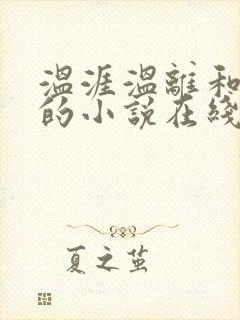 温涯温離和
的小說在綫
夏之茧